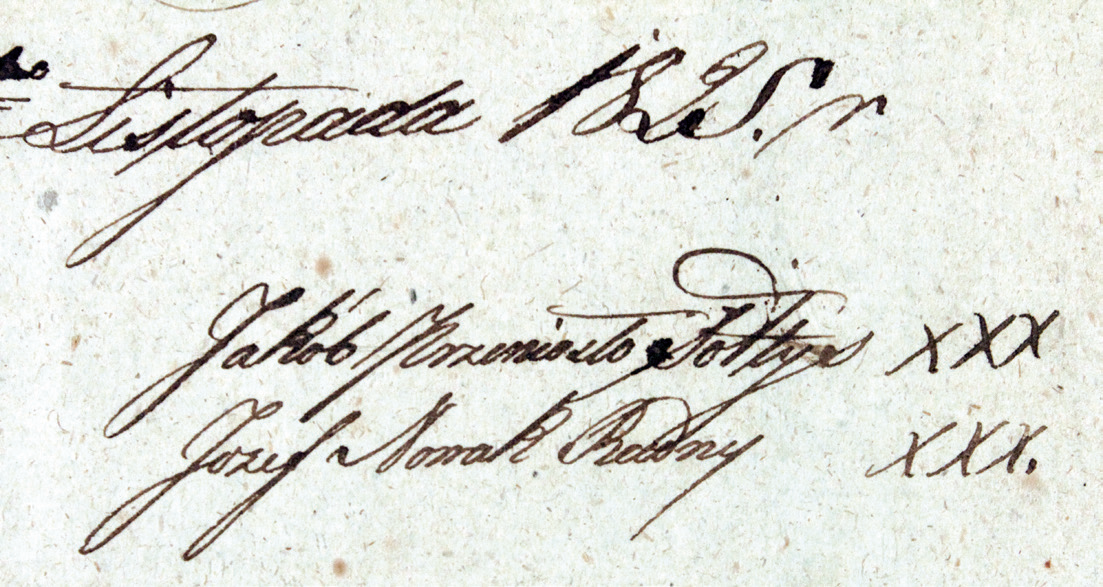 Listopada 1825. r
Jakób Krzeniosło Sołtys XXX
Jozef Nowak Radny XXX.